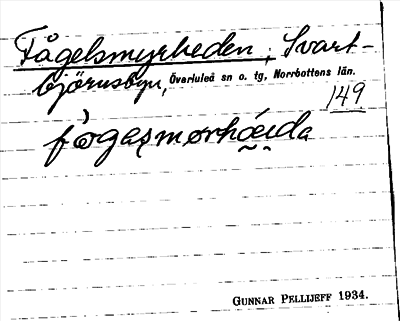 Fågelsmyrheden, Svart-
björnsbyn, Överluleå sn o. tg, Norrbottens län.
149
fògasmorhóuda
GUNNAR PELLIJEFF 1934.